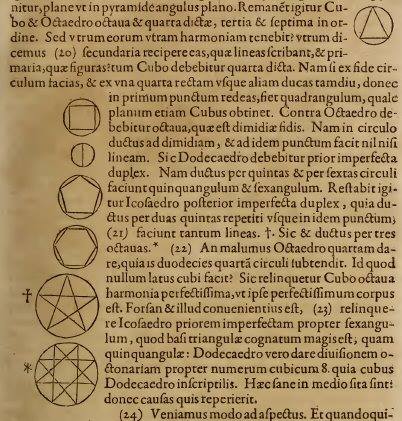 nitur, plane vt in pyramide angulus plano. Remanēt igitur Cu-
bo & Octaedro octaua & quarta dictæ, tertia & septima in or-
dine. Sed vtrum eorum vtram harmoniam tenebit? vtrum di-
cemus (20) secundaria recipere eas, quæ lineas scribant, & pri-
maria, quæ figuras? tum Cubo debebitur quarta dicta. Nam si ex fide cir-
culum facias, & ex vna quarta rectam vsque aliam ducas tamdiu, donec
in primum punctum redeas, fiet quadrangulum, quale
planum etiam Cubus obtinet. Contra Octaedro de-
bebitur octaua, quæ est dimidiæ fidis. Nam in circulo
ductus ad dimidiam, & ad idem punctum facit nil nisi
lineam. Sic Dodecaedro debebitur prior imperfecta
duplex. Nam ductus per quintas & per sextas circuli
faciunt quinquangulum & sexangulum. Restabit igi-
tur Icosaedro posterior imperfecta duplex, quia du-
ctus per duas quintas repetiti vsque in idem punctum;
(21) faciunt tantum lineas. †. Sic & ductus per tres
octauas.* (22) An malumus Octaedro quartam da-
re, quia is duodecies quartā circuli subtendit. Id quod
nullum latus cubi facit? Sic relinquetur Cubo octaua
harmonia perfectissima, vt ipse perfectissimum corpus
†
est. Forsan & illud conuenientius est, (23) relinque-
re Icosaedro priorem imperfectam propter sexangu-
lum, quod basi triangulæ cognatum magis est; quam
quinquangulæ: Dodecaedro vero dare diuisionem o-
*
ctonariam propter numerum cubicum 8. quia cubus
Dodecaedro inscriptilis. Hæc sane in medio sita sint:
donec causas quis repererit.
(24) Veniamus modo ad aspectus. Et quandoqui-